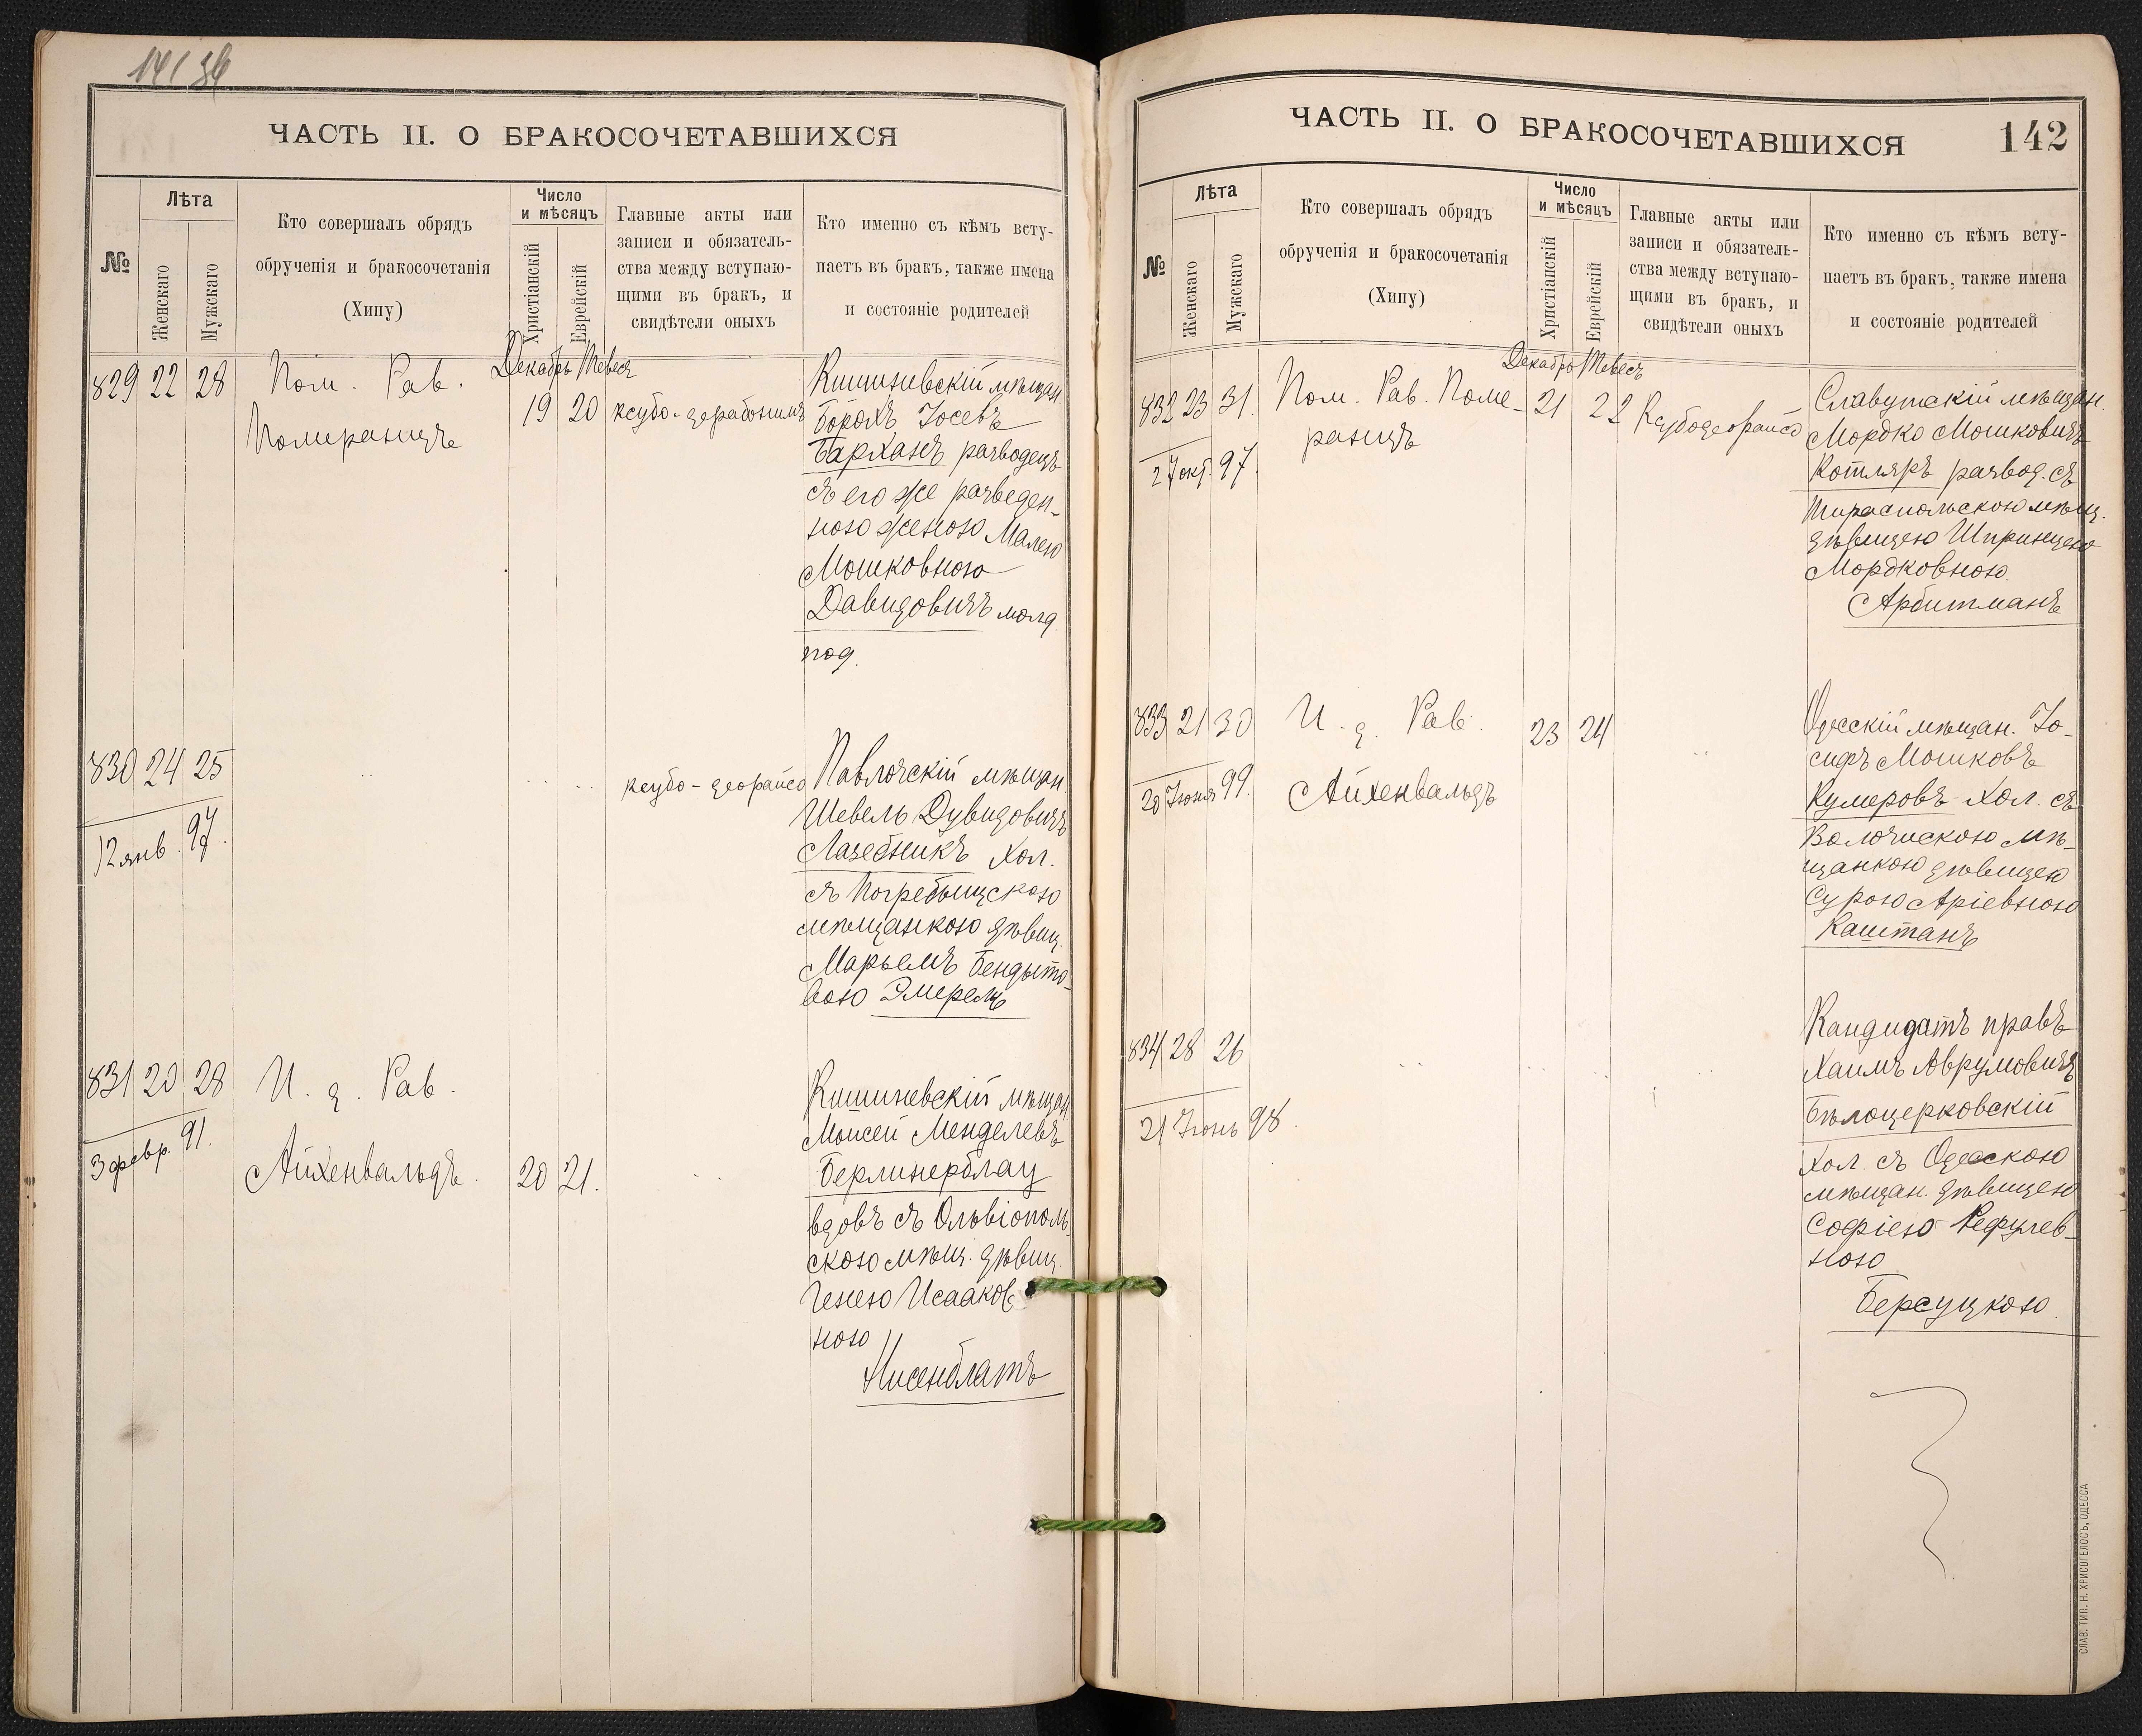 141
ЧАСТЬ II. О БРАКОСОЧЕТАВШИХСЯ
№
Лѣта
Женскаго
Мужскаго
Кто совершалъ обрядъ
обрученія и бракосочетанія
(Хипу)
Число
и мѣсяцъ
Христіанскій
Еврейскій
Главные акты или
записи и обязатель-
ства между вступаю-
щими въ бракъ, и
свидѣтели оныхъ
Кто именно съ кѣмъ всту-
паетъ въ бракъ, также имена
и состояніе родителей
829 22 28 Пом. Рав.
Померанцъ
Декабрь Тевесъ
19 20 ксубо-дерабонимъ
Кишиневскій мѣщан.
Борохъ Іосевъ
Барханъ разводецъ
съ его же разведен-
ною женою Малею
Мошковною
Давидовичъ молд.
под.
830 24 25 ксубо-деорайсо
12 янв. 97.
Павлочскій мѣщан.
Шевель Дувидовичъ
Лазебникъ хол.
съ Погребыщскою
мѣщанкою дѣвиц.
Марьемъ Бендыто-
вою Эмерель
831 20 28 И. д. Рав.
3 февр. 91.
Айхенвальдъ 20 21.
Кишиневскій мѣщан.
Моисей Менделевъ
Берлинерблау
вдовъ съ Ольвіополь-
скою мѣщ. дѣвиц.
Генею Исааков-
ною
Нисенблатъ
ЧАСТЬ II. О БРАКОСОЧЕТАВШИХСЯ 142
№
Лѣта
Женскаго
Мужскаго
Кто совершалъ обрядъ
обрученія и бракосочетанія
(Хипу)
Число
и мѣсяцъ
Христіанскій
Еврейскій
Главные акты или
записи и обязатель-
ства между вступаю-
щими въ бракъ, и
свидѣтели оныхъ
Кто именно съ кѣмъ всту-
паетъ въ бракъ, также имена
и состояніе родителей
Декабрь Тевесъ
832 23 31. Пом. Рав. Поме- 21 22 Ксубодеорайсо
ранцъ
27 окт. 97.
Славутскій мѣщан.
Мордко Мошковичъ
Котляръ развод. съ
Тираспольскою мѣщ.
дѣвицею Шпринцею
Мордковною
Арбитманъ
833 21 30 И. д. Рав. 23 24
20 Іюня 99. Айхенвальдъ
Одесскій мѣщан. Іо-
сифъ Мошковъ
Кумеровъ хол. съ
Волочискою мѣ-
щанкою дѣвицею
Сурою Аріевною
Каштанъ
834 28 26
21 Іюнь 98.
Кандидатъ правъ
Хаимъ Аврумовичъ
Бѣлоцерковскій
хол. съ Одесскою
мѣщан. дѣвицею
Софіею Рефулев-
ною
Берсуцкою
СЛАВ. ТИП. Н. ХРИСОГЕЛОСЪ, ОДЕССА